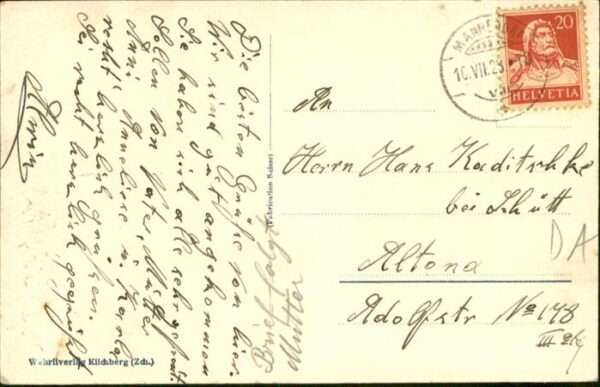 Die besten Grüße von hier.
Wir sind gut angekommen
Sie haben sich alle sehr gefreut.
Sollen von Vater, Mutter
Anni, Anneliese u. Karla
recht herzlich grüßen.
Sei recht herzlich gegrüßt
Brief folgt
Mutter
Fabrication Suisse
Wehrliverlag Kilchberg (Zch.)
10.VII.25
20
HELVETIA
An
Herrn Hans Kaditschke
bei Schütt
Altona
Adolfstr No 148
III
DA